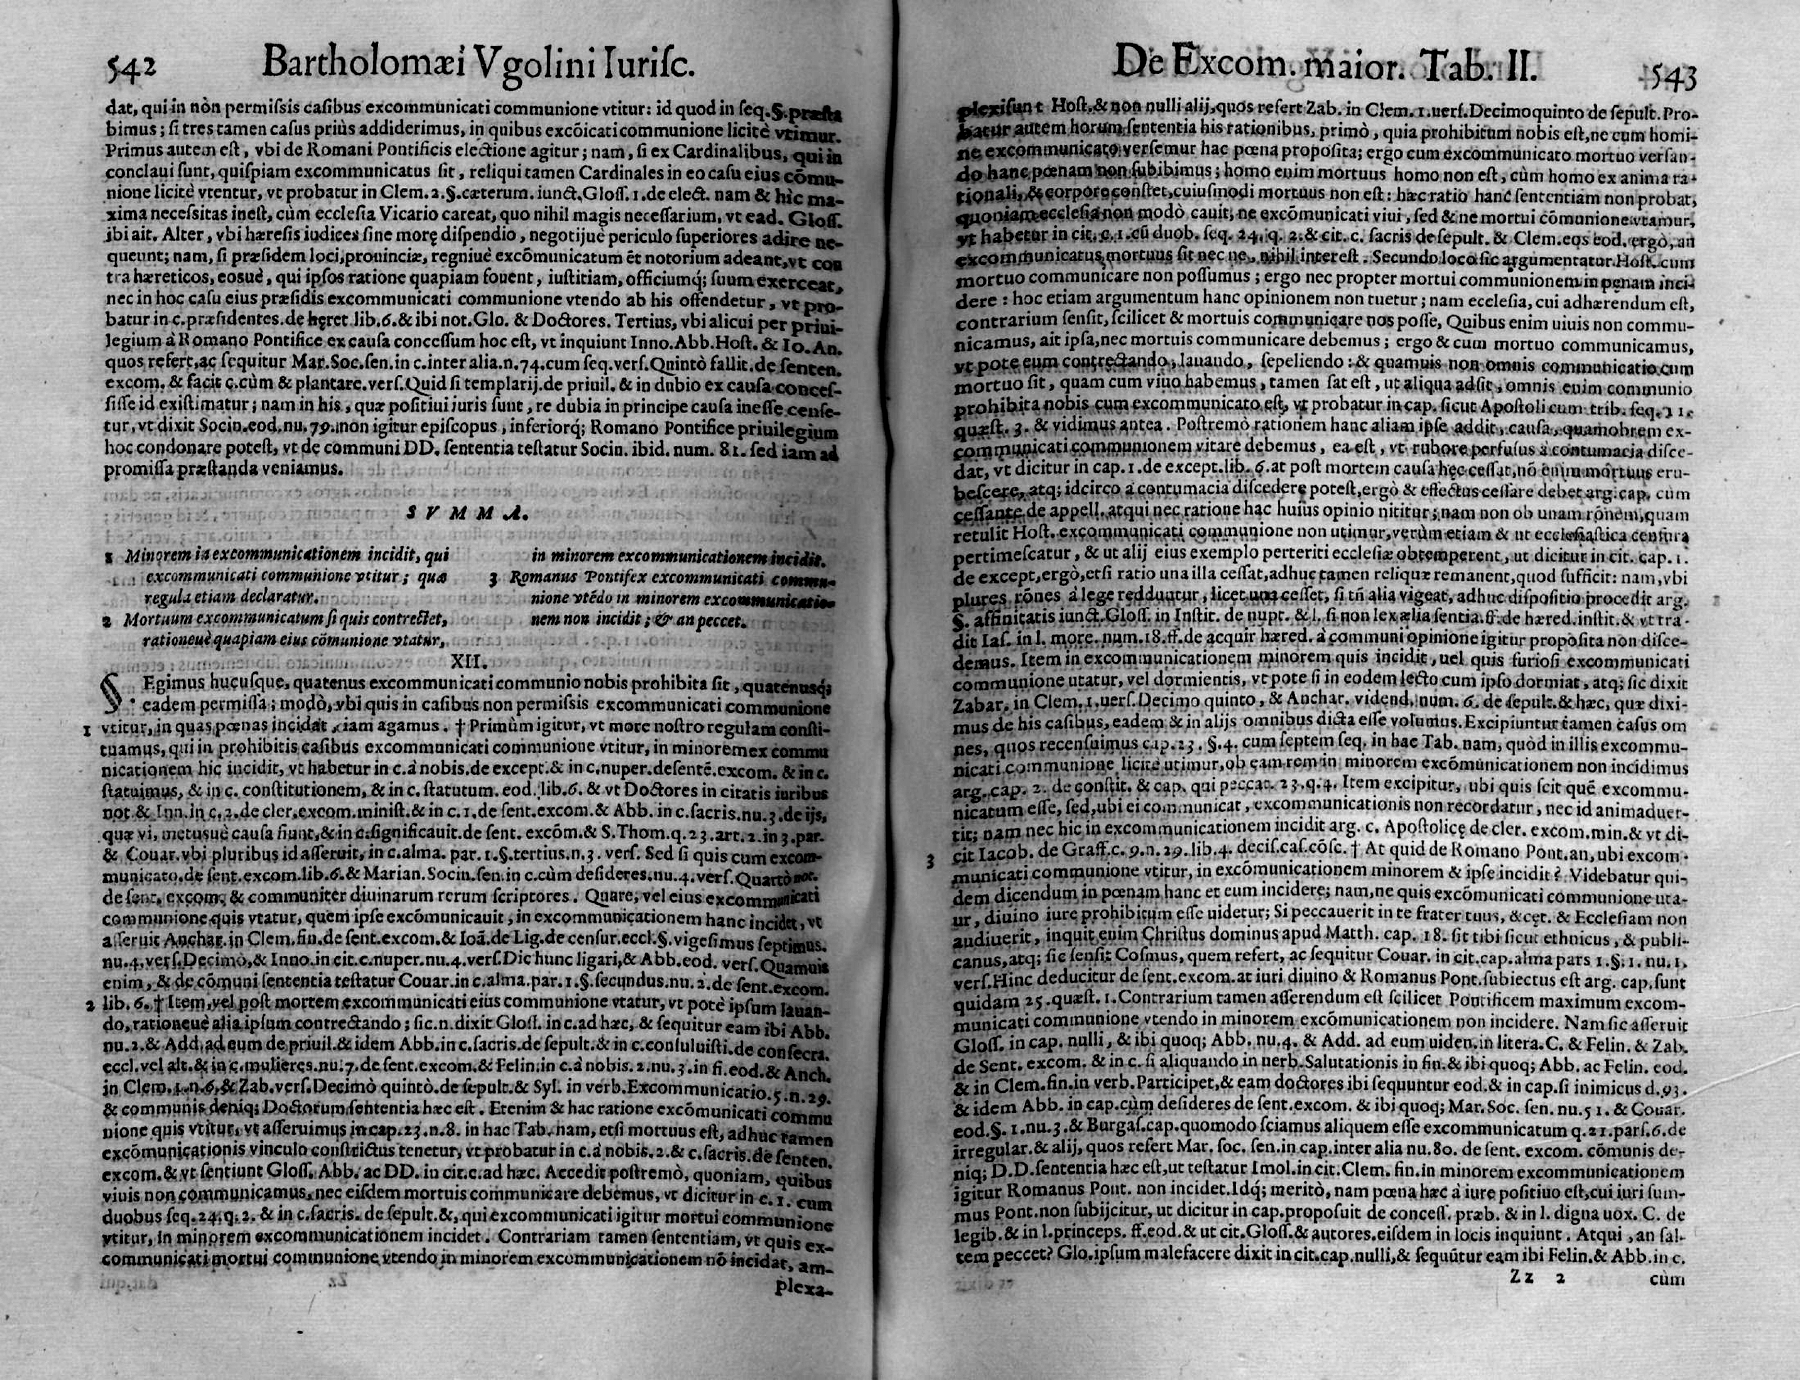 542 Bartholomæi Vgolini Iurisc.
dat, qui in nòn permissis casibus excommunicati communione vtitur: id quod in seq. §. præsta
bimus; si tres tamen casus priùs addiderimus, in quibus excōicati communione licitè vtimur.
Primus autem est, vbi de Romani Pontificis electione agitur; nam, si ex Cardinalibus, qui in
conclaui sunt, quispiam excommunicatus sit, reliqui tamen Cardinales in eo casu eius cōmu-
nione licitè vtentur, vt probatur in Clem. 2. §. cæterum. iunct. Gloss. 1. de elect. nam & hìc ma-
xima necessitas inest, cùm ecclesia Vicario careat, quo nihil magis necessarium, vt ead. Gloss.
ibi ait. Alter, vbi hæresis iudices sine moræ dispendio, negotijuè periculo superiores adire ne-
queunt; nam, si præsidem loci, prouinciæ, regniuè excōmunicatum ēt notorium adeant, vt con
tra hæreticos, eosuè, qui ipsos ratione quapiam fouent, iustitiam, officiumq; suum exerceat,
nec in hoc casu eius præsidis excommunicati communione vtendo ab his offendetur, vt pro-
batur in c. præsidentes. de hęret. lib. 6. & ibi not. Glo. & Doctores. Tertius, vbi alicui per priui-
legium à Romano Pontifice ex causa concessum hoc est, vt inquiunt Inno. Abb. Host. & Io. An.
quos refert, ac sequitur Mar. Soc. sen. in c. inter alia. n. 74. cum seq. vers. Quintò fallit. de senten.
excom. & facit c. cùm & plantare. vers. Quid si templarij. de priuil. & in dubio ex causa conces-
sisse id existimatur; nam in his, quæ positiui iuris sunt, re dubia in principe causa inesse cense-
tur, vt dixit Socin. eod. nu. 79. non igitur episcopus, inferiorq; Romano Pontifice priuilegium
hoc condonare potest, vt de communi DD. sententia testatur Socin. ibid. num. 81. sed iam ad
promissa præstanda veniamus.
SVMMA.
1 Minorem in excommunicationem incidit, qui
excommunicati communione vtitur; quæ
regula etiam declaratur.
2 Mortuum excommunicatum si quis contrectet,
rationeuè quapiam eius cōmunione vtatur,
in minorem excommunicationem incidit.
3 Romanus Pontifex excommunicati commu-
nione vtēdo in minorem excommunicatio-
nem non incidit; & an peccet.
XII.
SEgimus hucusque, quatenus excommunicati communio nobis prohibita sit, quatenusq;
eadem permissa; modò, vbi quis in casibus non permissis excommunicati communione
1 vtitur, in quas pœnas incidat, iam agamus. † Primùm igitur, vt more nostro regulam consti-
tuamus, qui in prohibitis casibus excommunicati communione vtitur, in minorem ex commu
nicationem hic incidit, vt habetur in c. à nobis. de except. & in c. nuper. de sentē. excom. & in c.
statuimus, & in c. constitutionem, & in c. statutum. eod. lib. 6. & vt Doctores in citatis iuribus
not. & Inn. in c. 2. de cler. excom. minist. & in c. 1. de sent. excom. & Abb. in c. sacris. nu. 3. de ijs,
quæ vi, metusuè causa fiunt, & in c. significauit. de sent. excōm. & S. Thom. q. 23. art. 2. in 3. par.
& Couar. vbi pluribus id asseruit, in c. alma. par. 1. §. tertius. n. 3. vers. Sed si quis cum excom-
municato. de sent. excom. lib. 6. & Marian. Socin. sen. in c. cùm desideres. nu. 4. vers. Quartò not.
de sent. excom. & communiter diuinarum rerum scriptores. Quare, vel eius excommunicati
communione quis vtatur, quem ipse excōmunicauit, in excommunicationem hanc incidet, vt
asseruit Anchar. in Clem. fin. de sent. excom. & Ioā. de Lig. de censur. eccl. §. vigesimus septimus.
nu. 4. vers. Decimò, & Inno. in cit. c. nuper. nu. 4. vers. Dic hunc ligari, & Abb. eod. vers. Quamuis
enim, & de cōmuni sententia testatur Couar. in c. alma. par. 1. §. secundus. nu. 2. de sent. excom.
2 lib. 6. † Item, vel post mortem excommunicati eius communione vtatur, vt potè ipsum lauan-
do, rationeuè alia ipsum contrectando; sic. n. dixit Gloss. in c. ad hæc, & sequitur eam ibi Abb.
nu. 2. & Add. ad eum de priuil. & idem Abb. in c. sacris. de sepult. & in c. consuluisti. de consecra.
eccl. vel alt. & in c. mulieres. nu. 7. de sent. excom. & Felin. in c. à nobis. 2. nu. 3. in fi. eod. & Anch.
in Clem. 1. n. 6. & Zab. vers. Decimò quintò. de sepult. & Syl. in verb. Excommunicatio. 5. n. 29.
& communis deniq; Doctorum sententia hæc est. Etenim & hac ratione excōmunicati commu
nione quis vtitur, vt asseruimus in cap. 23. n. 8. in hac Tab. nam, etsi mortuus est, adhuc tamen
excōmunicationis vinculo constrictus tenetur, vt probatur in c. à nobis. 2. & c. sacris. de senten.
excom. & vt sentiunt Gloss. Abb. ac DD. in cit. c. ad hæc. Accedit postremò, quoniam, quibus
viuis non communicamus, nec eisdem mortuis communicare debemus, vt dicitur in c. 1. cum
duobus seq. 24. q. 2. & in c. sacris. de sepult. &, qui excommunicati igitur mortui communione
vtitur, in minorem excommunicationem incidet. Contrariam tamen sententiam, vt quis ex-
communicati mortui communione vtendo in minorem excommunicationem nō incidat, am-
plexa-
De Excom. maior. Tab. II. 543
plexi sunt Host. & non nulli alij, quos refert Zab. in Clem. 1. uers. Decimoquinto de sepult. Pro-
batur autem horum sententia his rationibus, primò, quia prohibitum nobis est, ne cum homi-
ne excommunicato versemur hac pœna proposita; ergo cum excommunicato mortuo versan-
do hanc pœnam non subibimus; homo enim mortuus homo non est, cùm homo ex anima ra-
tionali, & corpore constet, cuiusmodi mortuus non est: hæc ratio hanc sententiam non probat,
quoniam ecclesia non modò cauit, ne excōmunicati viui, sed & ne mortui cōmunione vtamur,
vt habetur in cit. c. 1. cū duob. seq. 24. q. 2. & cit. c. sacris de sepult. & Clem. eos eod. ergò, an
excommunicatus mortuus sit nec ne, nihil interest. Secundo loco sic argumentatur Host. cum
mortuo communicare non possumus; ergo nec propter mortui communionem in pęnam inci-
dere: hoc etiam argumentum hanc opinionem non tuetur; nam ecclesia, cui adhærendum est,
contrarium sensit, scilicet & mortuis communicare nos posse, Quibus enim uiuis non commu-
nicamus, ait ipsa, nec mortuis communicare debemus; ergo & cum mortuo communicamus,
vt pote eum contrectando, lauando, sepeliendo: & quamuis non omnis communicatio cum
mortuo sit, quam cum viuo habemus, tamen sat est, ut aliqua adsit, omnis enim communio
prohibita nobis cum excommunicato est, vt probatur in cap. sicut Apostoli cum trib. seq. 11.
quæst. 3. & vidimus antea. Postremò rationem hanc aliam ipse addit, causa, quamobrem ex-
communicati communionem vitare debemus, ea est, vt rubore perfusus à contumacia disce-
dat, vt dicitur in cap. 1. de except. lib. 6. at post mortem causa hęc cessat, nō enim mortuus eru-
bescere, atq; idcirco à contumacia discedere potest, ergò & effectus cessare debet arg. cap. cum
cessante de appell. atqui nec ratione hac huius opinio nititur; nam non ob unam rōnem, quam
retulit Host. excommunicati communione non utimur, verùm etiam & ut ecclesiastica censura
pertimescatur, & ut alij eius exemplo perterriti ecclesiæ obtemperent, ut dicitur in cit. cap. 1.
de except, ergò, etsi ratio una illa cessat, adhuc tamen reliquæ remanent, quod sufficit: nam, vbi
plures rōnes à lege redduntur, licet una cesset, si tñ alia vigeat, adhuc dispositio procedit arg.
§. affinitatis iunct. Gloss. in Instit. de nupt. & l. si non lex ælia sentia. ff. de hæred. instit. & vt tra-
dit Ias. in l. more. num. 18. ff. de acquir hæred. à communi opinione igitur proposita non disce-
demus. Item in excommunicationem minorem quis incidit, uel quis furiosi excommunicati
communione utatur, vel dormientis, vt pote si in eodem lecto cum ipso dormiat, atq; sic dixit
Zabar. in Clem. 1. uers. Decimo quinto, & Anchar. vidend. num. 6. de sepult. & hæc, quæ dixi-
mus de his casibus, eadem & in alijs omnibus dicta esse volumus. Excipiuntur tamen casus om
nes, quos recensuimus cap. 23. §. 4. cum septem seq. in hac Tab. nam, quòd in illis excommu-
nicati communione licitè utimur, ob eam rem in minorem excōmunicationem non incidimus
arg. cap. 2. de constit. & cap. qui peccat. 23. q. 4. Item excipitur, ubi quis scit quē excommu-
nicatum esse, sed, ubi ei communicat, excommunicationis non recordatur, nec id animaduer-
tit; nam nec hic in excommunicationem incidit arg. c. Apostolicę de cler. excom. min. & vt di-
3 cit Iacob. de Graff. c. 9. n. 29. lib. 4. decis. cas. cōsc. † At quid de Romano Pont. an, ubi excom-
municati communione vtitur, in excōmunicationem minorem & ipse incidit? Videbatur qui-
dem dicendum in pœnam hanc et eum incidere; nam, ne quis excōmunicati communione uta-
ur, diuino iure prohibitum esse uidetur; Si peccauerit in te frater tuus, &cęt. & Ecclesiam non
audiuerit, inquit enim Christus dominus apud Matth. cap. 18. sit tibi sicut ethnicus, & publi-
canus, atq; sic sensit Cosmus, quem refert, ac sequitur Couar. in cit. cap. alma pars 1. §. 1. nu. 1.
vers. Hinc deducitur de sent. excom. at iuri diuino & Romanus Pont. subiectus est arg. cap. sunt
quidam 25. quæst. 1. Contrarium tamen asserendum est scilicet Pontificem maximum excom-
municati communione vtendo in minorem excōmunicationem non incidere. Nam sic asseruit
Gloss. in cap. nulli, & ibi quoq; Abb. nu. 4. & Add. ad eum uiden. in litera. C. & Felin. & Zab.
de Sent. excom. & in c. si aliquando in uerb. Salutationis in fin. & ibi quoq; Abb. ac Felin. eod.
& in Clem. fin. in verb. Participet, & eam doctores ibi sequuntur eod. & in cap. si inimicus d. 93.
& idem Abb. in cap. cùm desideres de sent. excom. & ibi quoq; Mar. Soc. sen. nu. 51. & Couar.
eod. §. 1. nu. 3. & Burgas. cap. quomodo sciamus aliquem esse excommunicatum q. 21. pars. 6. de
irregular. & alij, quos refert Mar. soc. sen. in cap. inter alia nu. 80. de sent. excom. cōmunis de-
niq; D.D. sententia hæc est, ut testatur Imol. in cit. Clem. fin. in minorem excommunicationem
igitur Romanus Pont. non incidet. Idq; meritò, nam pœna hæc à iure positiuo est, cui iuri sum-
mus Pont. non subijcitur, ut dicitur in cap. proposuit de concess. præb. & in l. digna uox. C. de
legib. & in l. princeps. ff. eod. & ut cit. Gloss. & autores. eisdem in locis inquiunt. Atqui, an sal-
tem peccet? Glo. ipsum malefacere dixit in cit. cap. nulli, & sequūtur eam ibi Felin. & Abb. in c.
Zz 2 cùm